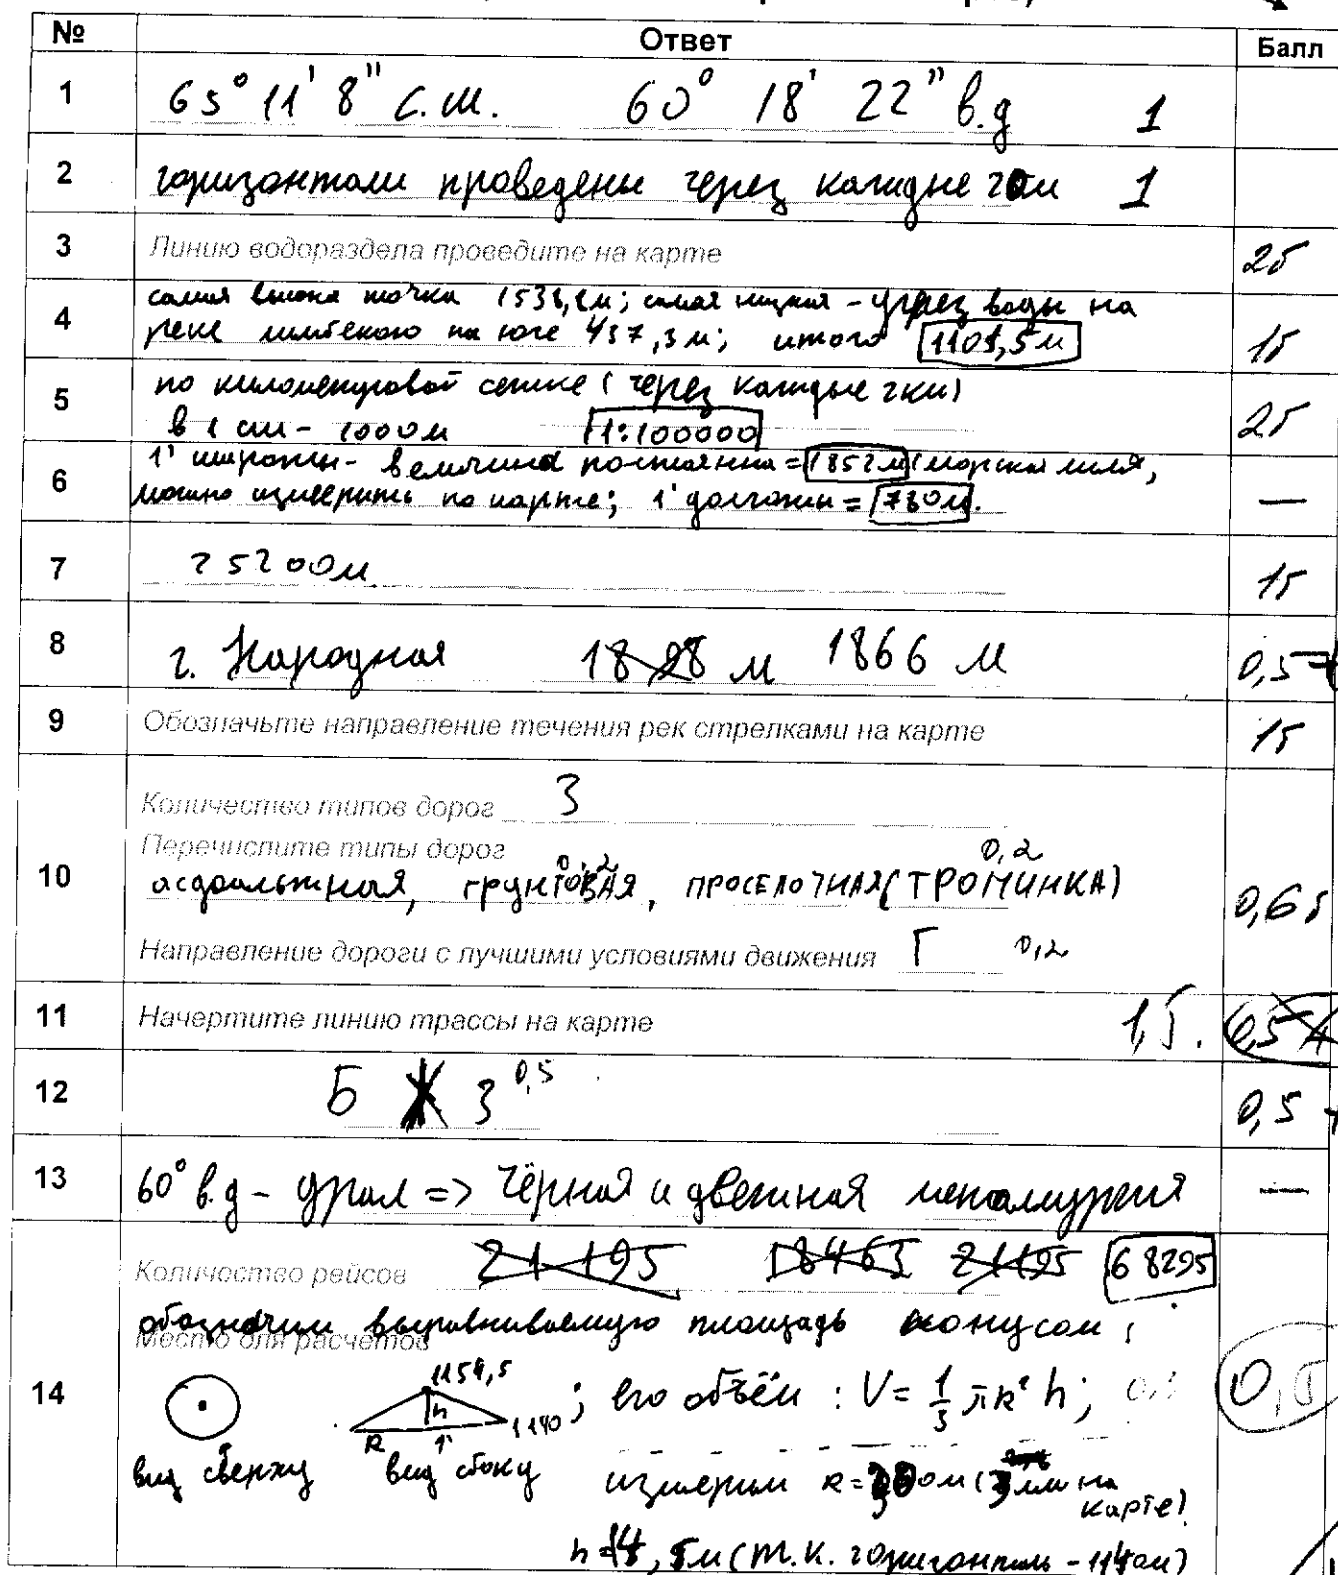 № Ответ Балл
1 65° 11' 8" с.ш. 60° 18' 22" в.д 1
2 горизонтали проведены через каждые 20м 1
3 Линию водораздела проведите на карте 2б
4 самая высока точка 1538,8м; самая низкая - урез воды на
реке на юге 437,3м; итого 1101,5м 1б
5 по километровой сетке (через каждые 2км)
в 1 см - 1000м 1:100000 2б
6 1' широты - величина постоянна = 1852м (морская миля,
можно измерить по карте; 1' долготы = 780м. —
7 25200м 1б
8 г. Народная 1828 м 1866 м 0,5
9 Обозначьте направление течения рек стрелками на карте 1б
Количество типов дорог 3
Перечислите типы дорог 0,2 0,2
10 асфальтная, грунтовая, проселочная (ТРОПИНКА) 0,6б
Направление дороги с лучшими условиями движения Г 0,2
11 Начертите линию трассы на карте 1,5.
12 Б Ж З 0,5 0,5
13 60° в.д - Урал => Чёрная и цветная металлургия —
Количество рейсов 21195 18463 21195 68295
обозначим выравниваемую площадь конусом;
Место для расчётов
14 1154,5 h 1140 R ; его объём : V = 1/3 πR² h;
вид сверху вид сбоку измерим R = (на карте)
(т.к. горизонталь - 1140м)